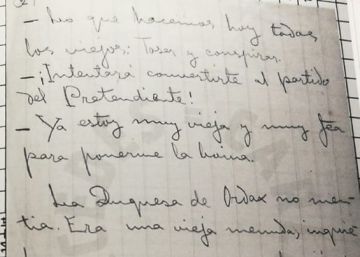 - Lo que hacemos hoy todas
los viejos: Toser y conspirar.
- ¡Intentará convertirte al partido
del Pretendiente!
- Ya estoy muy vieja y muy fea
para ponerme la boina.
La Duquesa de Ordax no men-
tía. Era una vieja menuda, inquie-